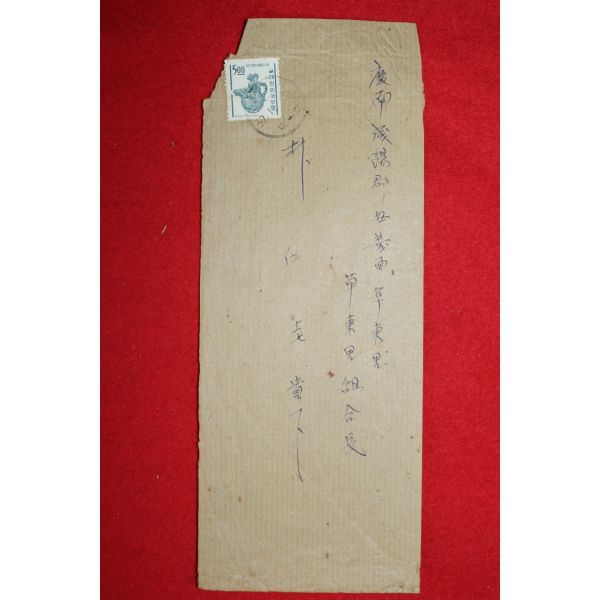 慶南咸陽郡 安義面 草東里
草東里 組合長
朴仁 貴下
5.00
대한민국우표